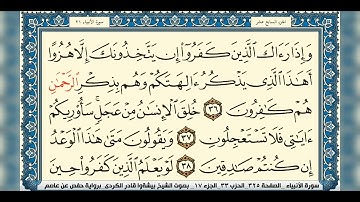 الجزء السابع عشر
سورة الأنبياء ٢١
وَإِذَا رَءَاكَ ٱلَّذِينَ كَفَرُوٓا۟ إِن يَتَّخِذُونَكَ إِلَّا هُزُوًا
أَهَٰذَا ٱلَّذِى يَذْكُرُ ءَالِهَتَكُمْ وَهُم بِذِكْرِ ٱلرَّحْمَٰنِ
هُمْ كَٰفِرُونَ ٣٦ خُلِقَ ٱلْإِنسَٰنُ مِنْ عَجَلٍ سَأُو۟رِيكُمْ
ءَايَٰتِى فَلَا تَسْتَعْجِلُونِ ٣٧ وَيَقُولُونَ مَتَىٰ هَٰذَا ٱلْوَعْدُ
إِن كُنتُمْ صَٰدِقِينَ ٣٨ لَوْ يَعْلَمُ ٱلَّذِينَ كَفَرُوا۟ حِينَ
سورة الأنبياء الصفحة ٣٢٥ الحزب ٣٣ الجزء ١٧ بصوت الشيخ بيشةوا قادر الكردى برواية حفص عن عاصم